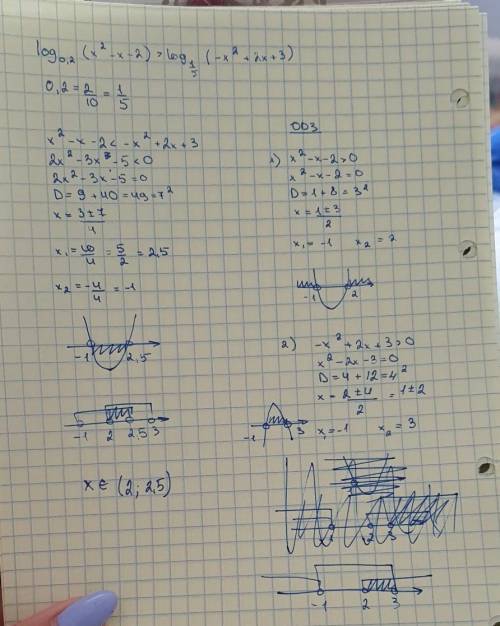 log₀,₂ (x² - x - 2) > log_{1/5} (-x² + 2x + 3)
0,2 = 2/10 = 1/5
x² - x - 2 < -x² + 2x + 3
2x² - 3x - 5 < 0
2x² - 3x - 5 = 0
D = 9 + 40 = 49 = 7²
x = (3 ± 7)/4
x₁ = 10/4 = 5/2 = 2,5
x₂ = -4/4 = -1
-1 2,5
-1 2 2,5 3
x ∈ (2; 2,5)
ОДЗ
1) x² - x - 2 > 0
x² - x - 2 = 0
D = 1 + 8 = 3²
x = (1 ± 3)/2
x₁ = -1 x₂ = 2
-1 2
2) -x² + 2x + 3 > 0
x² - 2x - 3 = 0
D = 4 + 12 = 4²
x = (2 ± 4)/2 = 1 ± 2
x₁ = -1 x₂ = 3
-1 3
-1 2 3